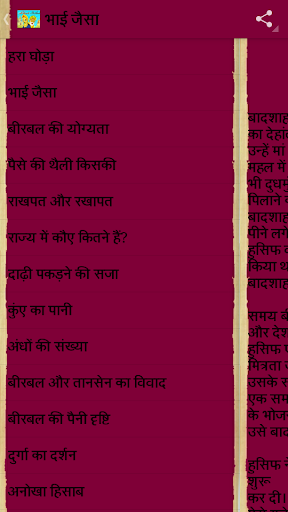 भाई जैसा
हरा घोड़ा
भाई जैसा
बीरबल की योग्यता
पैसे की थैली किसकी
राखपत और रखापत
राज्य में कौए कितने हैं?
दाढ़ी पकड़ने की सजा
कुंए का पानी
अंधों की संख्या
बीरबल और तानसेन का विवाद
बीरबल की पैनी दृष्टि
दुर्गा का दर्शन
अनोखा हिसाब
बादशाह
का देहा
उन्हें मां
महल में
भी दुधमु
पिलाने व
बादशाह
पीने लगे
हुसिफ व
किया थ
बादशाह
समय बी
और देश
हुसिफ प
मित्रता ज
उसके स
एक सम
के भोज
उसे बाद
हुसिफ ने
शुरू
कर दी।